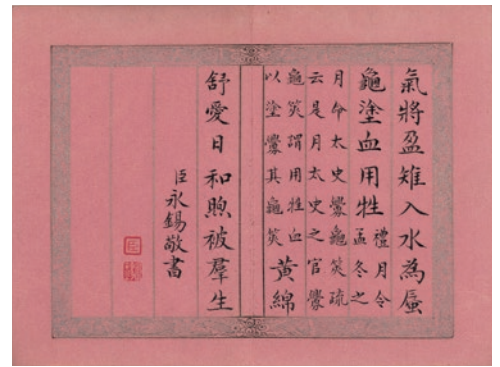 氣將盈雉入水為蜃
龜塗血用牲禮月令
孟冬之
月命太史釁龜筴疏
云是月太史之官釁
龜筴謂用牲血
以塗釁其龜筴黃綿
舒愛日和煦被羣生
臣永錫敬書